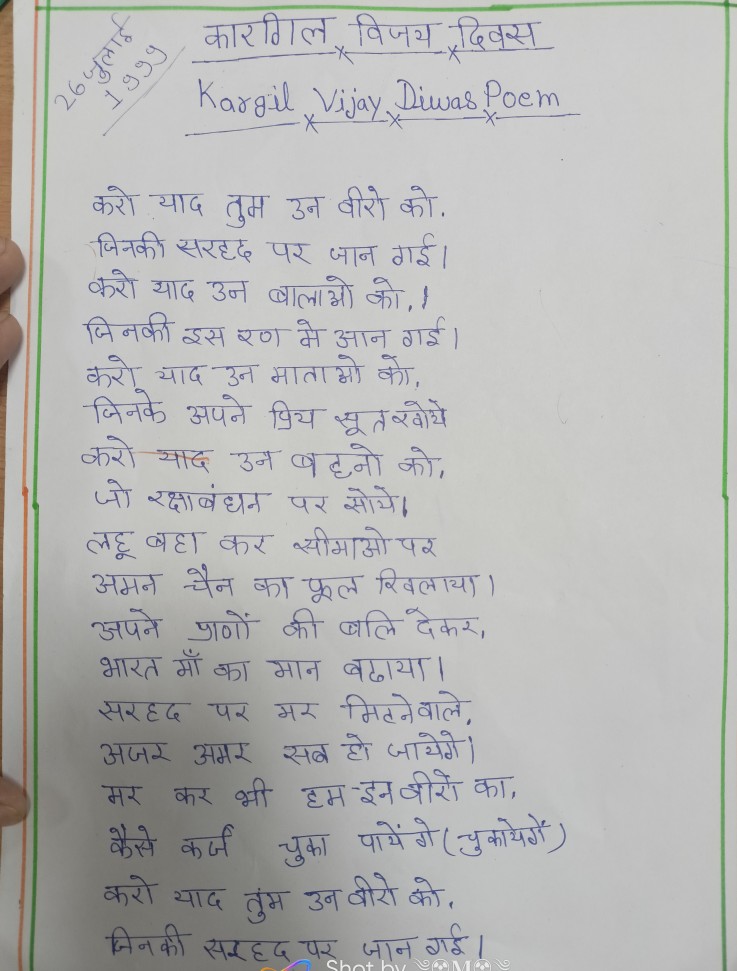 26 जुलाई
1999
कारगिल विजय दिवस
Kargil Vijay Diwas Poem
करो याद तुम उन वीरो को,
जिनकी सरहद पर जान गई।
करो याद उन बालाओ को,।
जिनकी इस रण मे आन गई।
करो याद उन माताओ को,
जिनके अपने प्रिय सूत खोये
करो याद उन बहनो को,
जो रक्षाबंधन पर सोये।
लहू बहा कर सीमाओ पर
अमन चैन का फूल खिलाया।
अपने प्राणों की बलि देकर,
भारत माँ का मान बढाया।
सरहद पर मर मिटनेवाले,
अजर अमर सब हो जायेगे।
मर कर भी हम इन वीरो का,
कैसे कर्ज चुका पायेंगे (चुकायेगें)
करो याद तुम उन वीरो को,
जिनकी सरहद पर जान गई।
Shot by